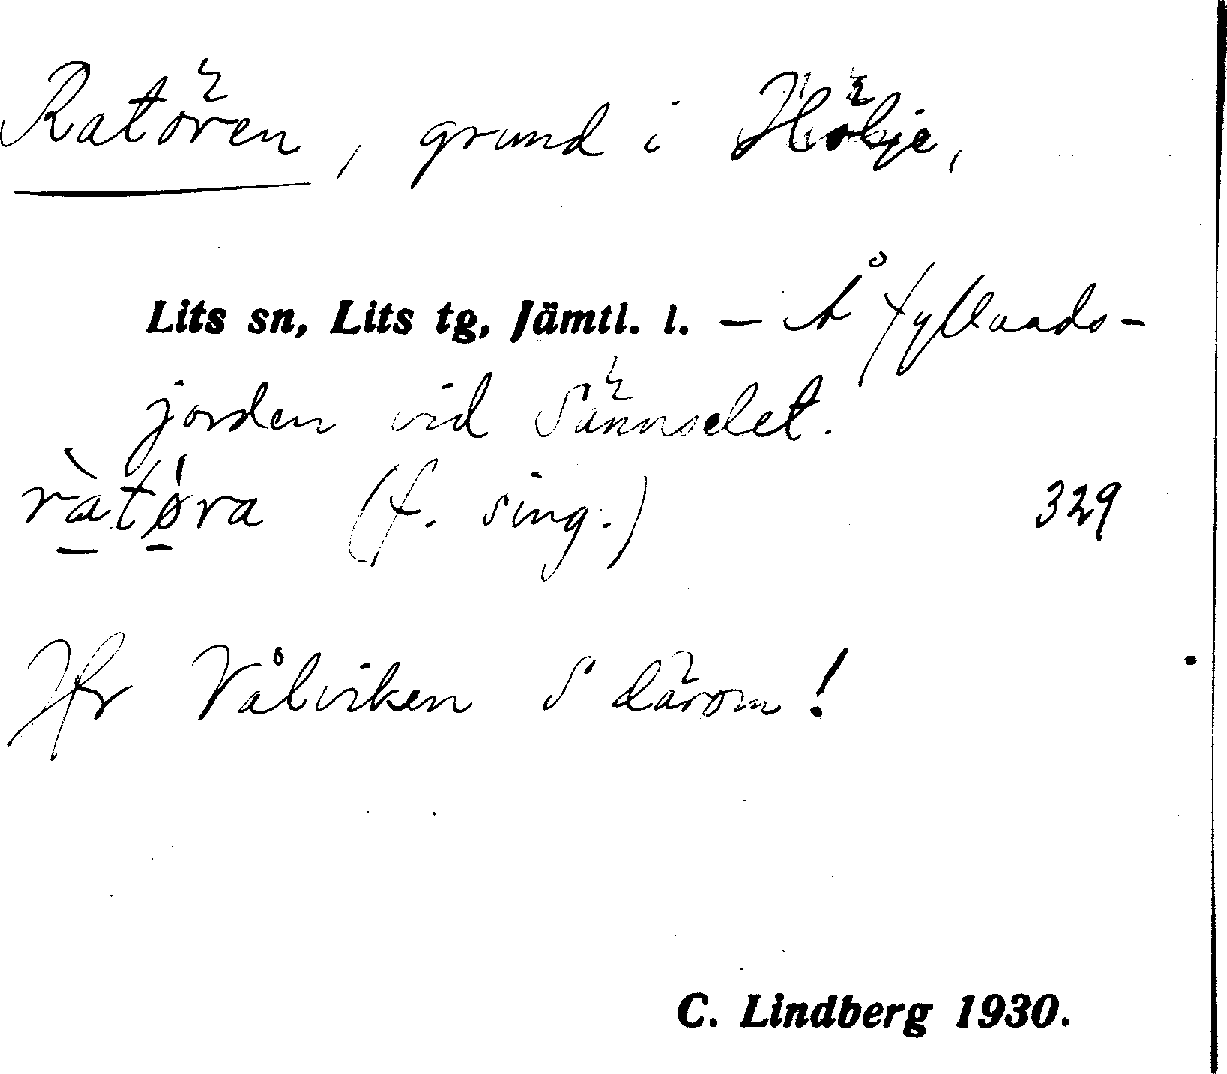 Ratören, grund i Hökje,
Lits sn, Lits tg, Jämtl. l. — Å Fyllands-
jorden vid Sännselet.
ràtǿra (f. sing.) 329
Jfr Vålviken S därom!
C. Lindberg 1930.